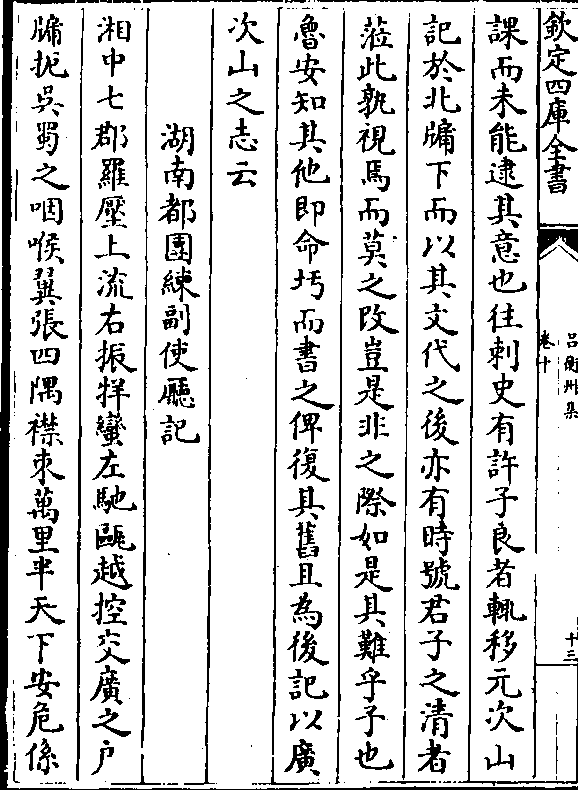 欽定四庫全書
呂衡州集
卷十
十三
課而未能逮其意也往刺史有許子良者輒移元次山
記於北牖下而以其文代之後亦有時號君子之清者
蒞此孰視焉而莫之改豈是非之際如是其難乎予也
魯安知其他即命圬而書之俾復其舊且為後記以廣
次山之志云
湖南都團練副使廳記
湘中七郡羅壓上流右振牂蠻左馳甌越控交廣之戶
牖扼吳蜀之咽喉翼張四隅襟束萬里半天下安危係